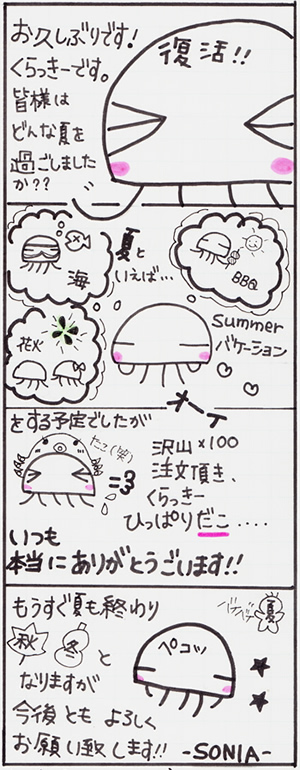 お久しぶりです!
復活!!
くらっきーです。
皆様は
どんな夏を
過ごしました
か??
夏と
いえば…
海
BBQ
花火
Summer
バケーション
をする予定でしたが
オーイ
たこ(笑)
沢山×100
注文頂き、
くらっきー
ひっぱりだこ....
いつも
本当にありがとうございます!!
もうすぐ夏も終わり
バイバイ
夏
秋 冬 と
ペコッ
なりますが
今後とも よろしく
お願い致します!! -SONIA-